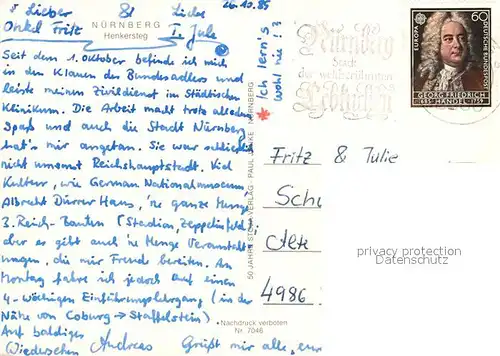 Lieber & Liebe 26.10.85
Onkel Fritz T. Jule
NÜRNBERG
Henkersteg
Seit dem 1. Oktober befinde ich mich
in den Klauen des Bundesadlers und
leiste meinen Zivildienst im Städtischen
Klinikum. Die Arbeit macht trotz alledem
Spaß und auch die Stadt Nürnberg
hat's mir angetan. Sie war schließlich
nicht umsonst Reichshauptstadt. Viel
Kultur, wie German. Nationalmuseum
Albrecht Dürrer Haus, 'ne ganze Menge
3. Reich-Bauten (Stadion, Zeppelinfeld)
aber es gibt auch 'ne Menge Veranstalt
ungen, die mir Freude bereiten. Am
Montag fahre ich jedoch auf einen
4-wöchigen Einführungslehrgang (in der
Nähe von Coburg → Staffelstein)
Auf baldiges
Wiedersehen Andreas Grüßt mir alle,
* Ich lern's
wohl nie!?
50 JAHRE STOJA-VERLAG PAUL JANKE NÜRNBERG
• Nachdruck verboten
Nr. 7046
Nürnberg
Stadt
der weltberühmten
Lebkuchen
EUROPA CEPT 60
DEUTSCHE BUNDESPOST
GEORG FRIEDRICH
1685 HÄNDEL 1759
Fritz & Julie
Sch
Alte
4986
privacy protection
Datenschutz